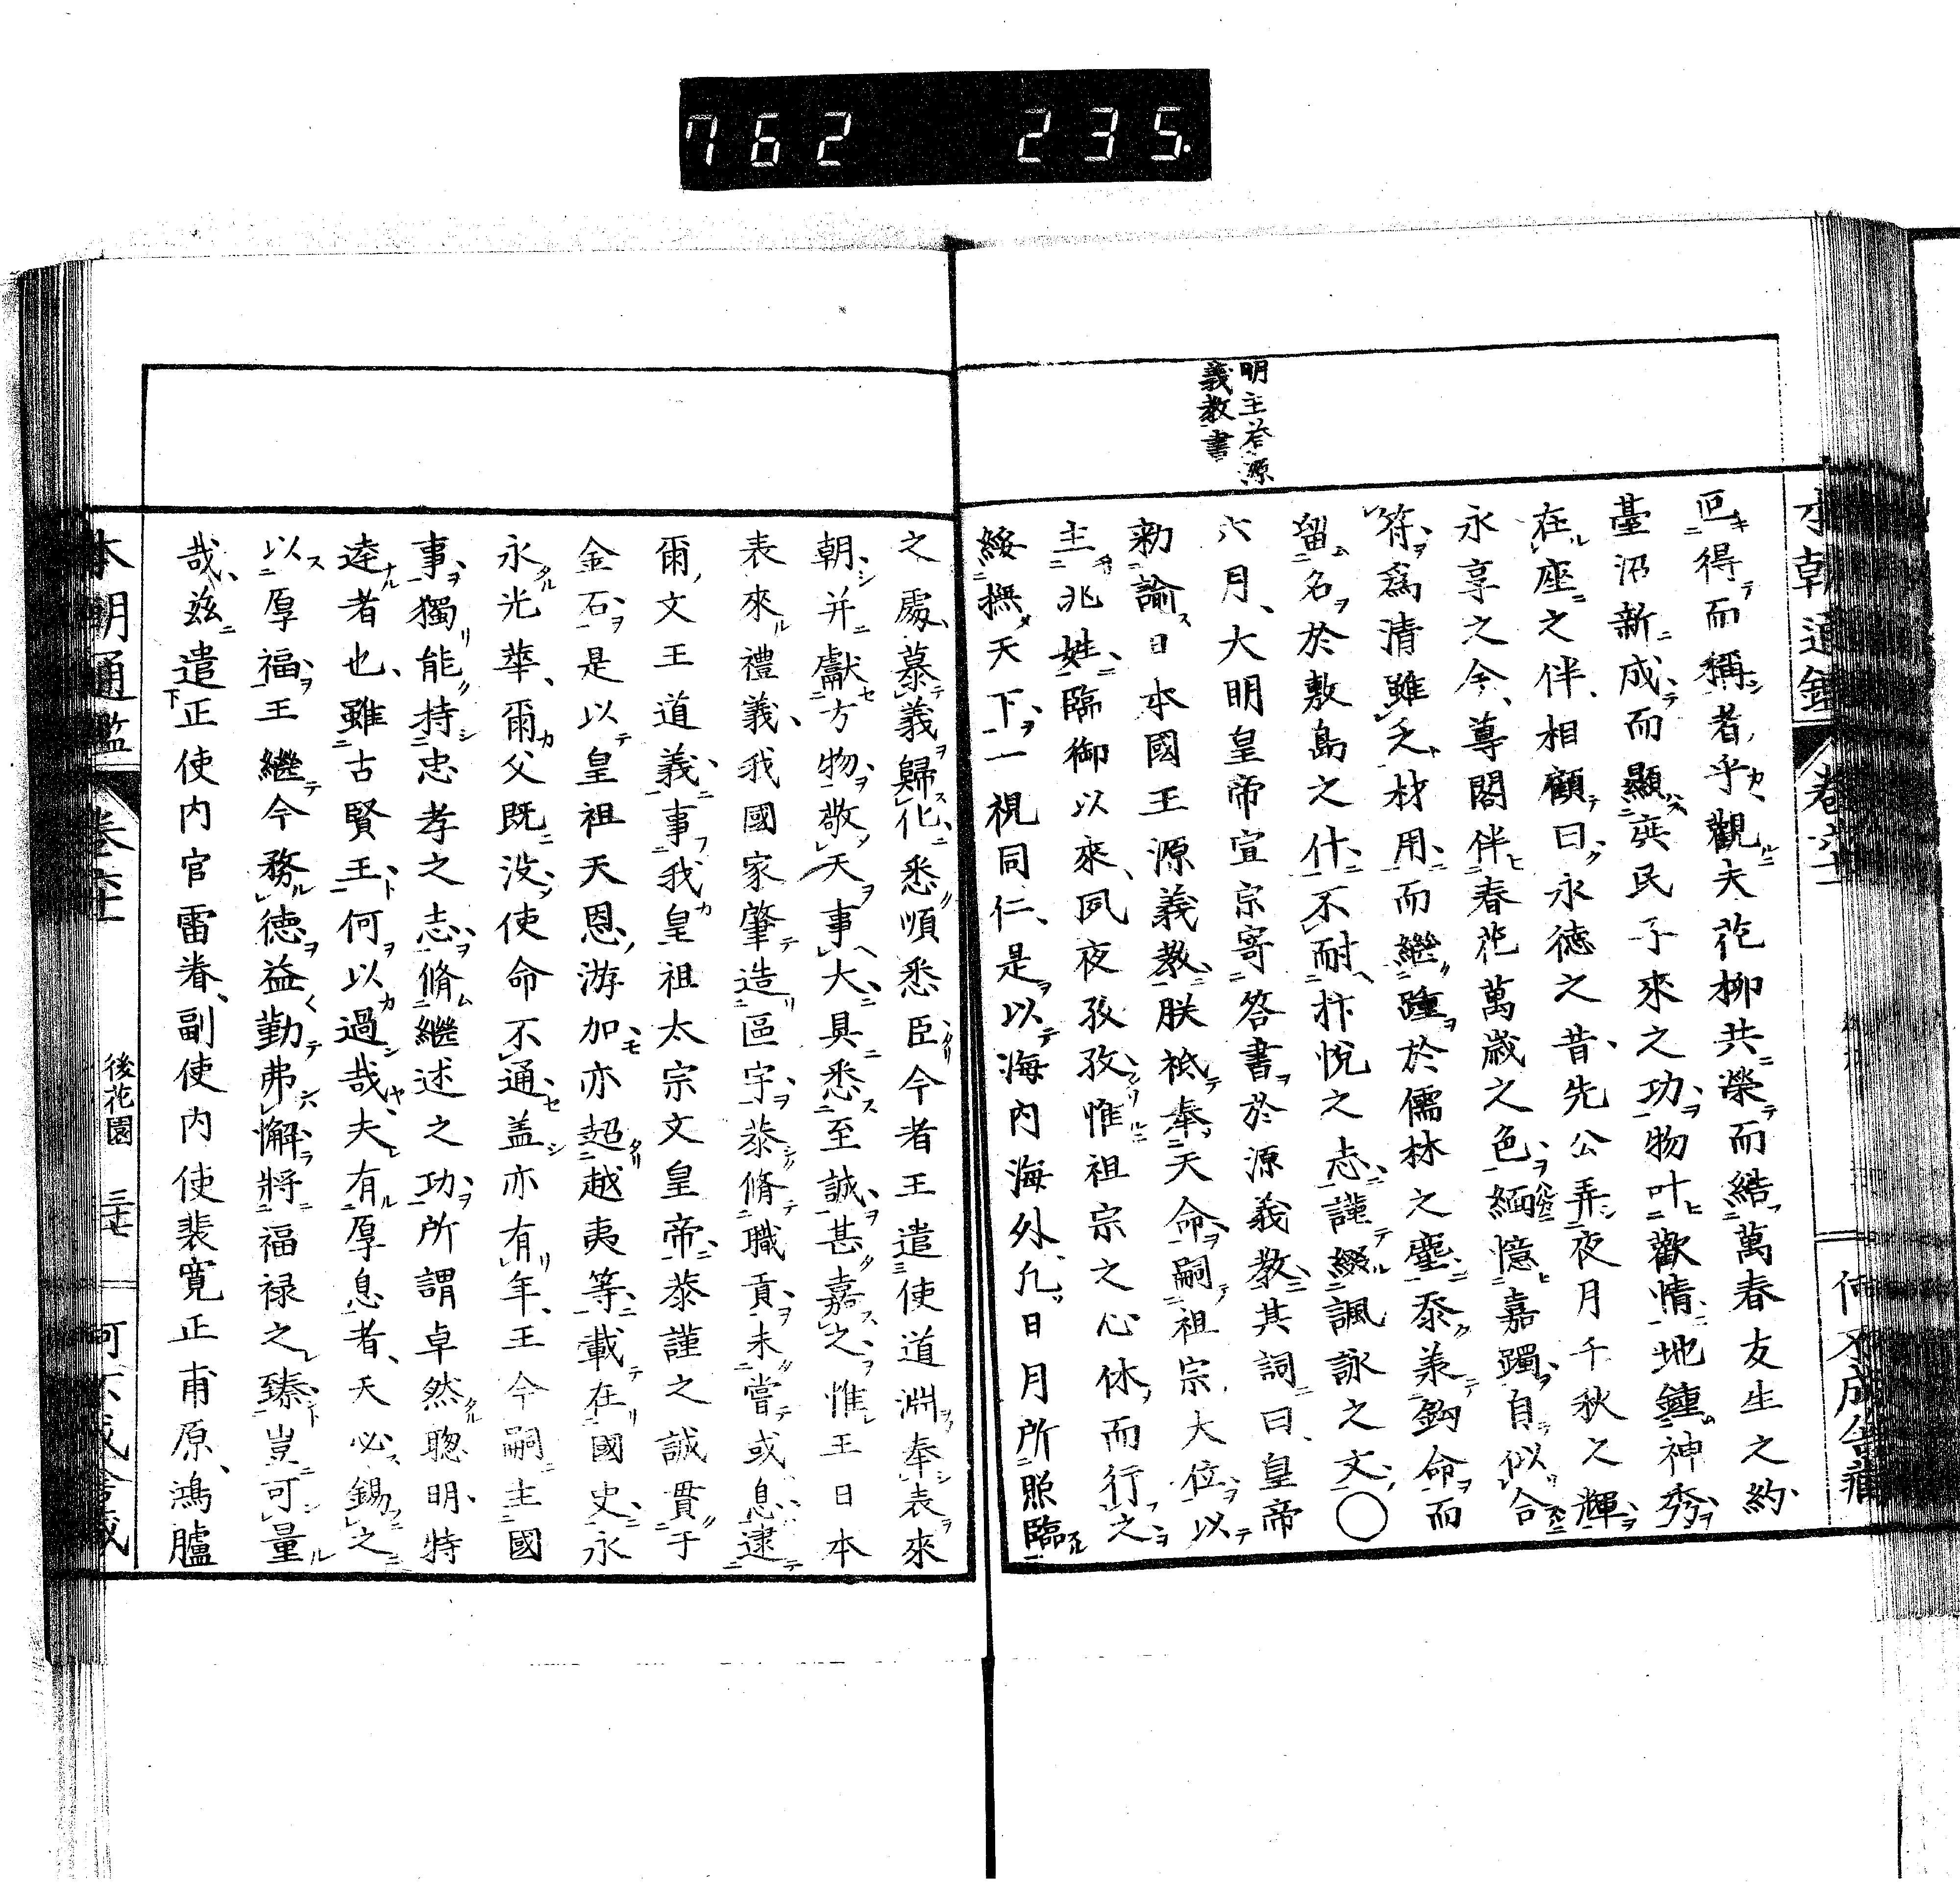 762 235.
本朝通鑑 卷六十
明主荅源
義教書
叵得而稱者乎觀夫花柳共榮而結萬春友生之約
臺沼新成而顯奕民子來之功物叶歡情地鍾神秀
在座之伴相顧曰永德之昔先公弄夜月千秋之輝
永享之今尊閤伴春花萬歲之色緬憶嘉躅自似合
符爲清雖乏材用而繼踵於儒林之塵忝羕鈞命而
留名於敷島之什不耐抃悅之志謹綴諷詠之文○
六月大明皇帝宣宗寄答書於源義教其詞曰皇帝
勅諭日本國王源義教朕祗奉天命嗣祖宗大位以
主兆姓臨御以來夙夜孜孜惟祖宗之心休而行之
綏撫天下一視同仁是以海内海外凢日月所照臨
之處慕義歸化悉順悉臣今者王遣使道淵奉表來
朝并獻方物敬天事大具悉至誠甚嘉之惟王日本
表來禮義我國家肇造區宇恭脩職貢未嘗或息逮
爾文王道義事我皇祖太宗文皇帝恭謹之誠貫于
金石是以皇祖天恩游加亦超越夷等載在國史永
永光華爾父既没使命不通盖亦有年王今嗣主國
事獨能持忠孝之志脩繼述之功所謂卓然聰明特
逹者也雖古賢王何以過哉夫有厚息者天必錫之
以厚福王繼今務德益勤弗懈將福禄之臻豈可量
哉兹遣正使内官雷春副使内使裴寛正甫原鴻臚
本朝通鑑
後花園 三十七